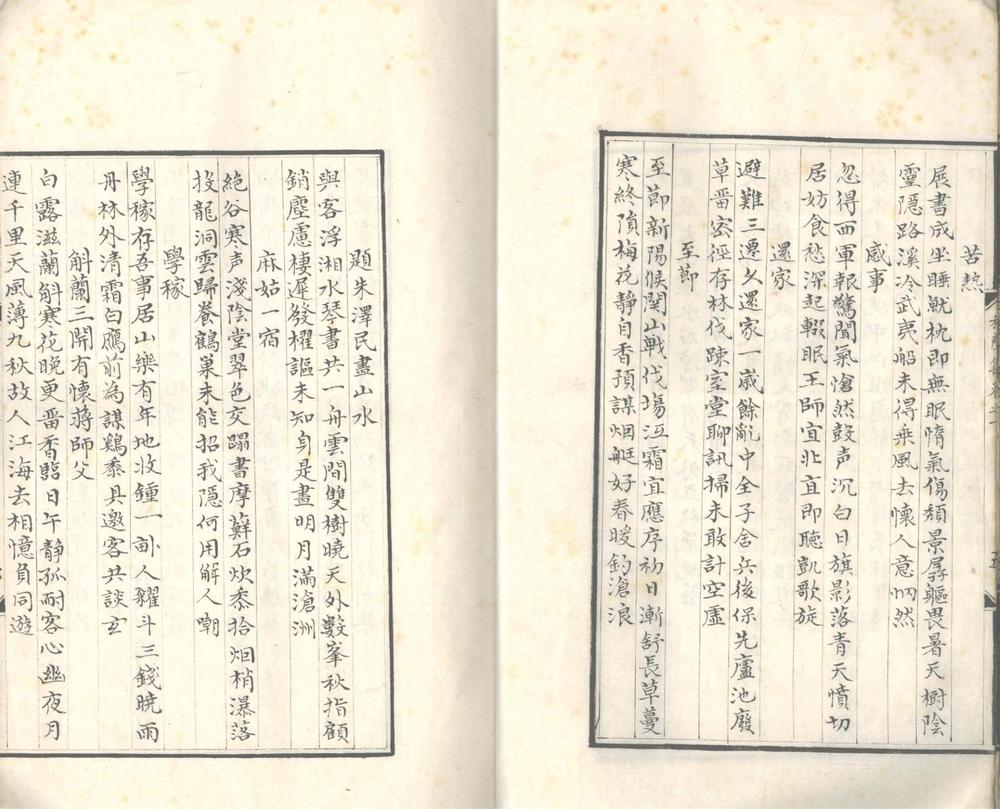 苦熱
展書成坐睡就枕即無眠惰氣傷頽景孱軀畏暑天樹陰
靈隠路溪冷武夷船未得乗風去懷人意惘然
感事
忽得西軍報驚聞氣愴然鼓声沉白日旗影落青天憤切
居妨食愁深起輟眠王師宜北宜即聴凱歌旋
還家
避難三遷久還家一嵗餘亂中全子舍兵後保先廬池廢
草畨密徑存林伐踈室堂聊訊掃未敢計空虚
至節
至節新陽候関山戰伐塲江霜宜應序初日漸舒長草蔓
寒終隕梅花静自香預謀烟艇好春暖釣滄浪
題朱澤民畫山水
與客浮湘水琴書共一舟雲間雙樹曉天外數峯秋指顧
銷塵慮棲遲發櫂謳未知身是畫明月滿滄洲
麻姑一宿
絶谷寒声淺陰堂翠色交蹋書摩蘚石炊黍拾烟梢瀑落
投龍洞雲歸養鶴巢未能招我隠何用解人嘲
學稼
學稼存吾事居山樂有年地收鍾一畝人糴斗三錢曉雨
丹林外清霜白鴈前為謀鷄黍具邀客共談玄
斛蘭三開有懷蔣師父
白露滋蘭斛寒花晚更畨香臨日午静孤耐客心幽夜月
連千里天風薄九秋故人江海去相憶負同遊